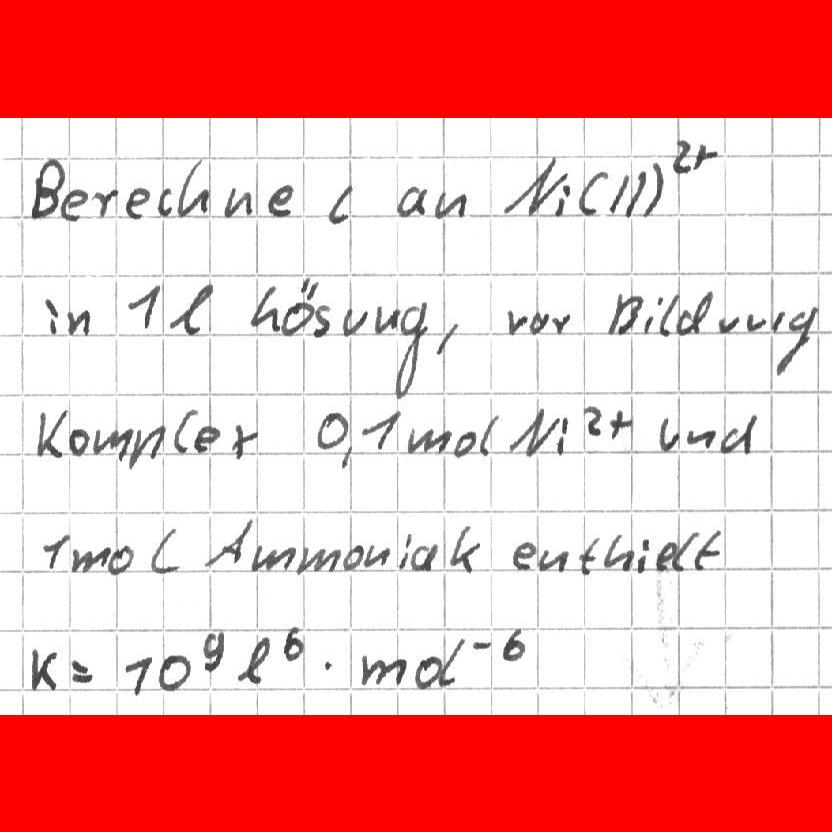 Berechne c an Ni(II)²⁺
in 1 l Lösung, vor Bildung
Komplex 0,1 mol Ni²⁺ und
1 mol Ammoniak enthielt
K = 10⁹ l⁶ · mol⁻⁶